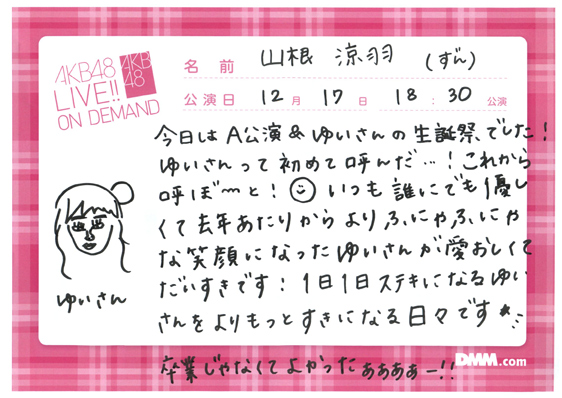 AKB48
LIVE!!
ON DEMAND
AKB
48
名前 山根 涼羽 (ずん)
公演日 12月 17日 18:30 公演
今日は A公演 & ゆいさんの生誕祭でした!
ゆいさんって初めて呼んだ…!これから
呼ぼ〜と!いつも誰にでも優し
くて去年あたりからよりふにゃふにゃ
な笑顔になったゆいさんが愛おしくて
だいすきです!1日1日ステキになるゆい
さんをよりもっとすきになる日々です
ゆいさん
卒業じゃなくてよかったぁぁぁぁー!!
DMM.com